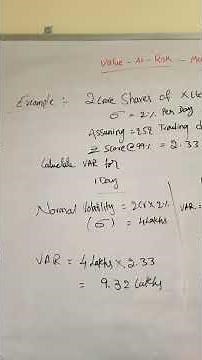 Value - At - Risk - Me
Example :- 2 Core Shares of X Lt
σ = 2% Per Day
Assuming = 252 Trading d
Z Score @ 99% = 2.33
Calculate VAR for
1 Day
Normal Volatility = 2 Cr x 2%
(σ) = 4 Lakhs
VAR =
VAR = 4 Lakhs x 2.33
= 9.32 Lakhs